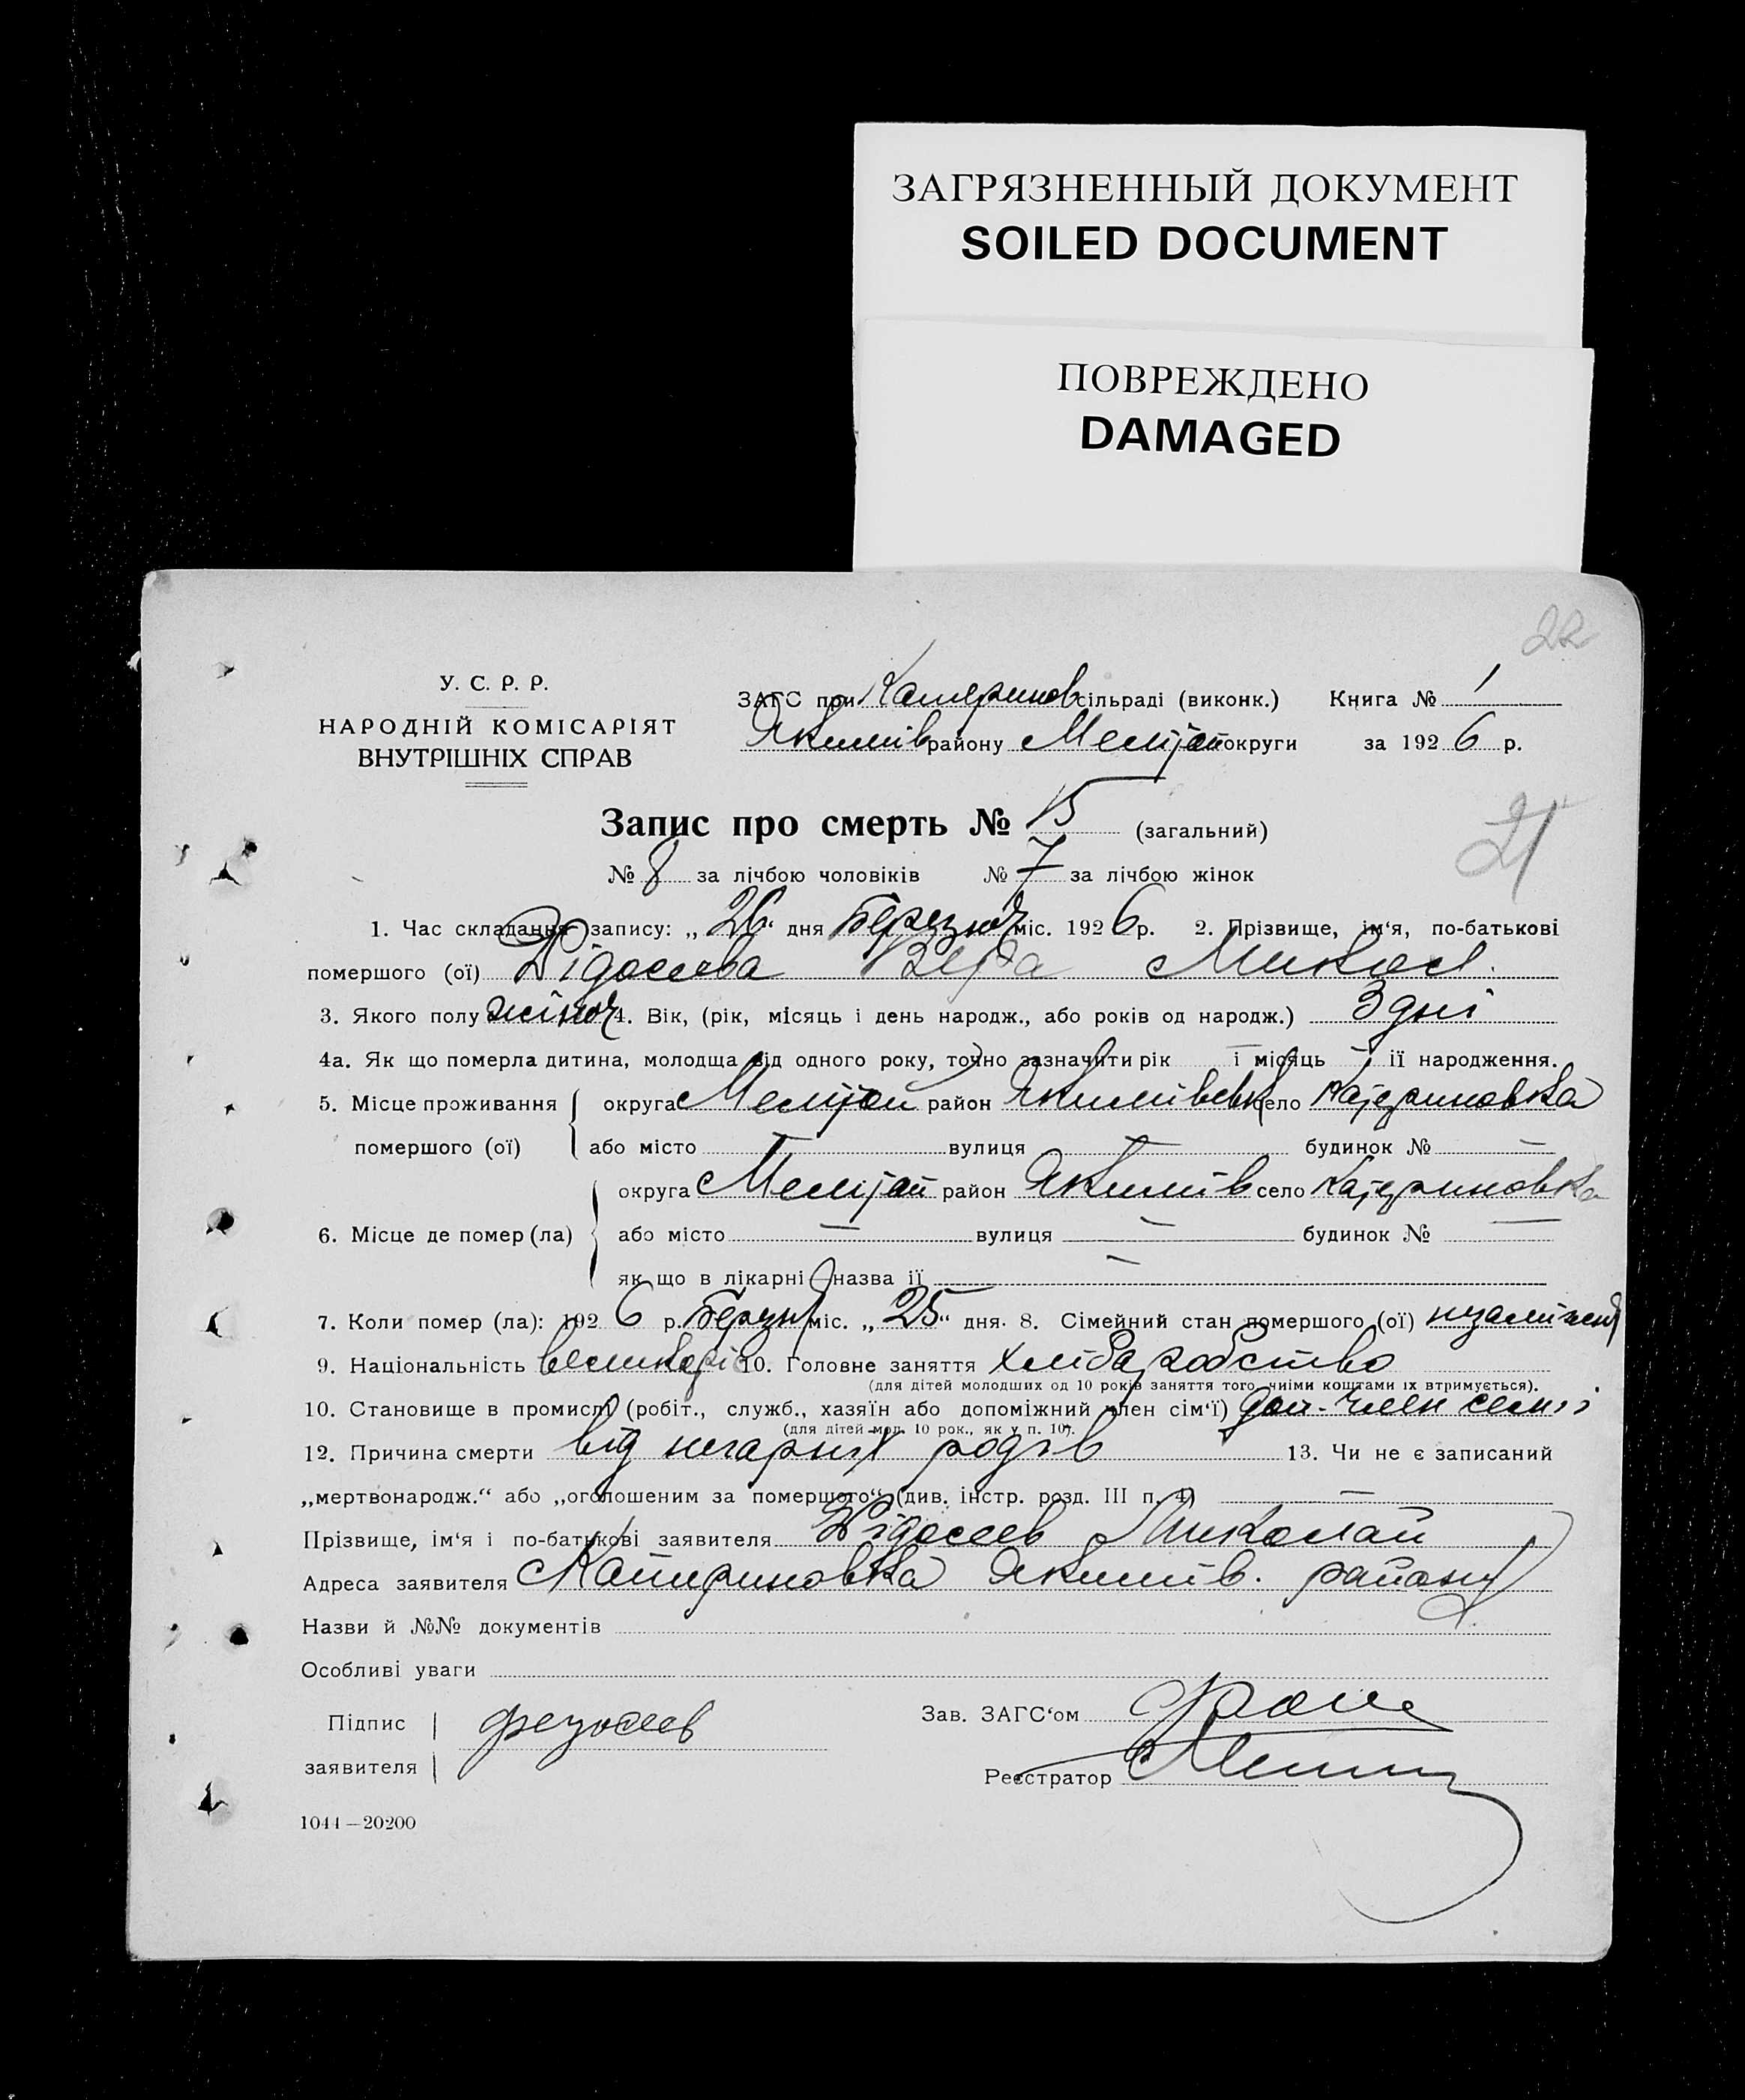 ЗАГРЯЗНЕННЫЙ ДОКУМЕНТ
SOILED DOCUMENT
ПОВРЕЖДЕНО
DAMAGED
22
У. С. Р. Р.
НАРОДНІЙ КОМІСАРІЯТ
ВНУТРІШНІХ СПРАВ
ЗАГС при Катеринов сільраді (виконк.) Книга № 1
Якимів району Мелітоп округи за 1926 р.
Запис про смерть № 15 (загальний)
21
№ 8 за лічбою чоловіків № 7 за лічбою жінок
1. Час складання запису: „26“ дня березня міс. 1926 р. 2. Прізвище, ім‘я, по-батькові
помершого (ої) Вера Микол.
3. Якого полу жіноч 4. Вік, (рік, місяць і день народж., або років од народж.) 3 дні
4а. Як що померла дитина, молодша від одного року, точно зазначити рік — і місяць — ії народження.
5. Місце проживання помершого (ої) округа Мелітоп район Якимівськ село Катериновка
або місто — вулиця — будинок № —
6. Місце де помер (ла) округа Мелітоп район Якимів село Катериновка
або місто — вулиця — будинок № —
як що в лікарні назва ії —
7. Коли помер (ла): 1926 р. березня міс. „25“ дня. 8. Сімейний стан помершого (ої)
9. Національність великорів 10. Головне заняття хлібаробство
(для дітей молодших од 10 років заняття того, чиіми коштами їх втримується).
10. Становище в промислі (робіт., служб., хазяїн або допоміжний член сім‘ї) доп. член семії
(для дітей мол. 10 рок., як у п. 10).
12. Причина смерти від негарних родів 13. Чи не є записаний
„мертвонародж.“ або „оголошеним за помершого“ (див. інстр. розд. III п. 4) —
Прізвище, ім‘я і по-батькові заявителя Миколай
Адреса заявителя Катериновка Якимів. району
Назви й №№ документів
Особливі уваги
Підпис заявителя
Зав. ЗАГС‘ом
Реєстратор
1044—20200